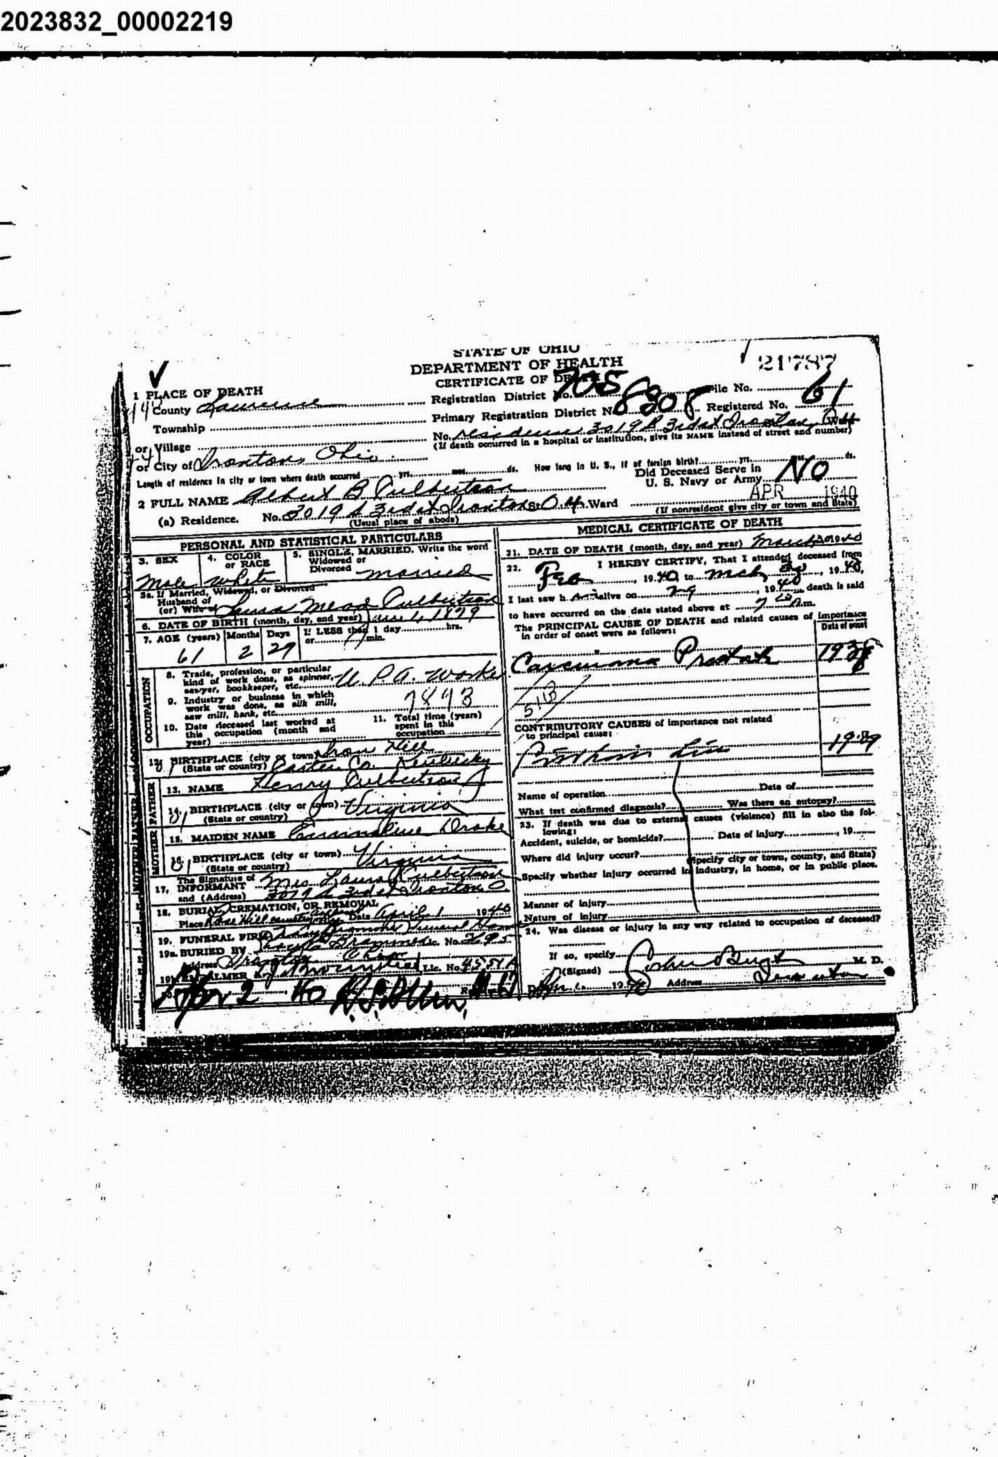 2023832_00002219
STATE OF OHIO
DEPARTMENT OF HEALTH
CERTIFICATE OF DEATH
21787
1 PLACE OF DEATH
County Lawrence
Registration District No. 705 File No.
Township
Primary Registration District No. 8308 Registered No. 61
or Village
No. Residence 3019 S 3rd st Ironton Ward
(If death occurred in a hospital or institution, give its NAME instead of street and number)
or City of Ironton Ohio
Length of residence in city or town where death occurred yrs. mos. ds. How long in U. S., if of foreign birth? yrs. ds.
Did Deceased Serve in
U. S. Navy or Army NO
2 FULL NAME Albert B Culbertson
APR 1940
(a) Residence. No. 3019 S 3rd st Ironton O Ward
(Usual place of abode) (If nonresident give city or town and State)
PERSONAL AND STATISTICAL PARTICULARS
3. SEX 4. COLOR or RACE 5. SINGLE, MARRIED, Write the word Widowed or Divorced
Male White married
5a. If Married, Widowed, or Divorced
Husband of
(or) Wife of Laura Mead Culbertson
6. DATE OF BIRTH (month, day, and year)
7. AGE (years) Months Days If LESS than 1 day hrs.
or min.
61 2 27
OCCUPATION
8. Trade, profession, or particular
kind of work done, as spinner,
sawyer, bookkeeper, etc. W. P. A. Worker
9. Industry or business in which
work was done, as silk mill,
saw mill, bank, etc. 7893
10. Date deceased last worked at
this occupation (month and
year)
11. Total time (years)
spent in this
occupation
12. BIRTHPLACE (city or town) Iron Hill
(State or country) Carter Co. Kentucky
FATHER
13. NAME Henry Culbertson
14. BIRTHPLACE (city or town) Virginia
(State or country)
MOTHER
15. MAIDEN NAME Drake
16. BIRTHPLACE (city or town) Virginia
(State or country)
17. The Signature of
INFORMANT Mrs. Laura Culbertson
and (Address) 3019 S 3rd st Ironton O
18. BURIAL, CREMATION, OR REMOVAL
Place Date April 1 1940
19. FUNERAL FIRM
19a. BURIED BY Lic. No.
Address Ironton Ohio
EMBALMER Lic. No. 4558A
Apr 2 40
MEDICAL CERTIFICATE OF DEATH
21. DATE OF DEATH (month, day, and year) March
22. I HEREBY CERTIFY, That I attended deceased from
Feb , 1940 to Mch , 1940,
I last saw h alive on 29 , 1940 death is said
to have occurred on the date stated above at 7 m.
The PRINCIPAL CAUSE OF DEATH and related causes of importance
in order of onset were as follows: Date of onset
Carcinoma Prostate 1938
CONTRIBUTORY CAUSES of importance not related
to principal cause:
1939
Name of operation Date of
What test confirmed diagnosis? Was there an autopsy?
23. If death was due to external causes (violence) fill in also the fol-
lowing:
Accident, suicide, or homicide? Date of injury , 19
Where did injury occur?
(Specify city or town, county, and State)
Specify whether injury occurred in industry, in home, or in public place.
Manner of injury
Nature of injury
24. Was disease or injury in any way related to occupation of deceased?
If so, specify
(Signed) M. D.
Address Ironton